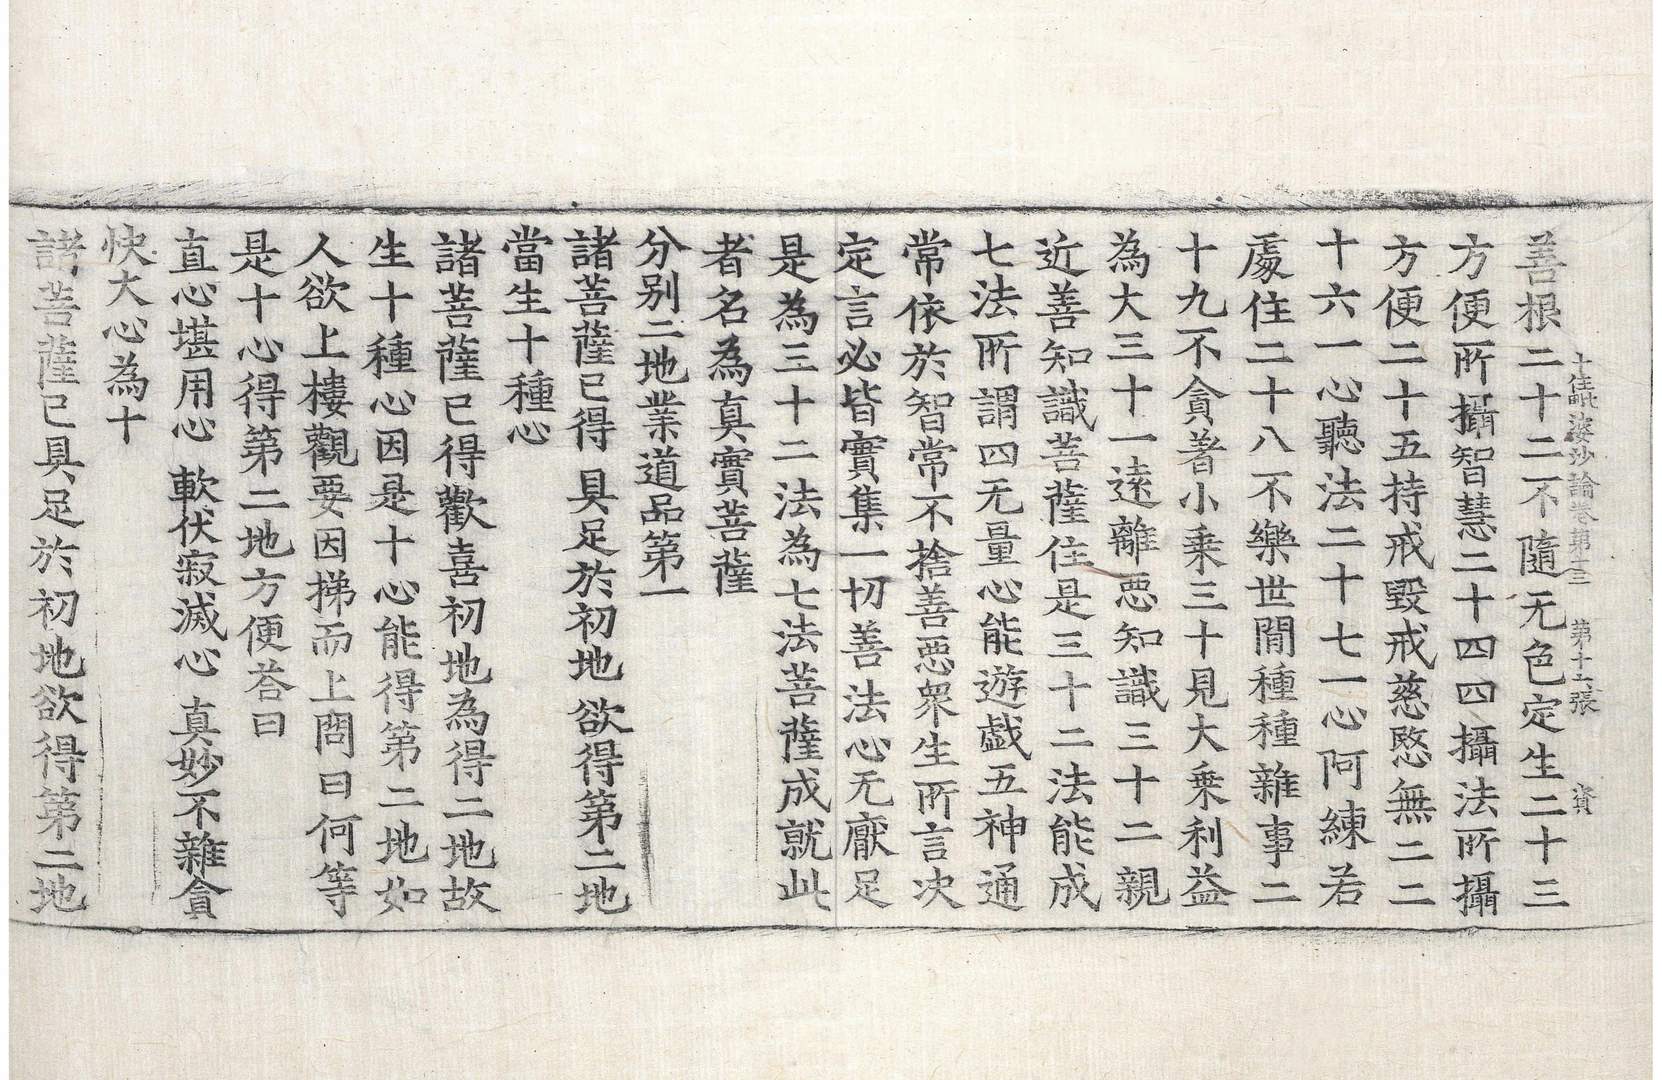 善根二十二不隨无色定生二十三
十住毗婆沙論卷第三　第十六張　資
方便所攝智慧二十四四攝法所攝
方便二十五持戒毀戒慈愍無二二
十六一心聽法二十七一心阿練若
處住二十八不樂世間種種雜事二
十九不貪著小乗三十見大乗利益
為大三十一遠離惡知識三十二親
近善知識菩薩住是三十二法能成
七法所謂四无量心能遊戱五神通
常依於智常不捨善惡衆生所言决
定言必皆實集一切善法心无厭足
是為三十二法為七法菩薩成就此
者名為真實菩薩
分别二地業道品第一
諸菩薩已得　具足於初地　欲得第二地
當生十種心
諸菩薩已得歡喜初地為得二地故
生十種心因是十心能得第二地如
人欲上樓觀要因梯而上問曰何等
是十心得第二地方便荅曰
直心堪用心　軟伏寂滅心　真妙不雜貪
快大心為十
諸菩薩已具足於初地欲得第二地